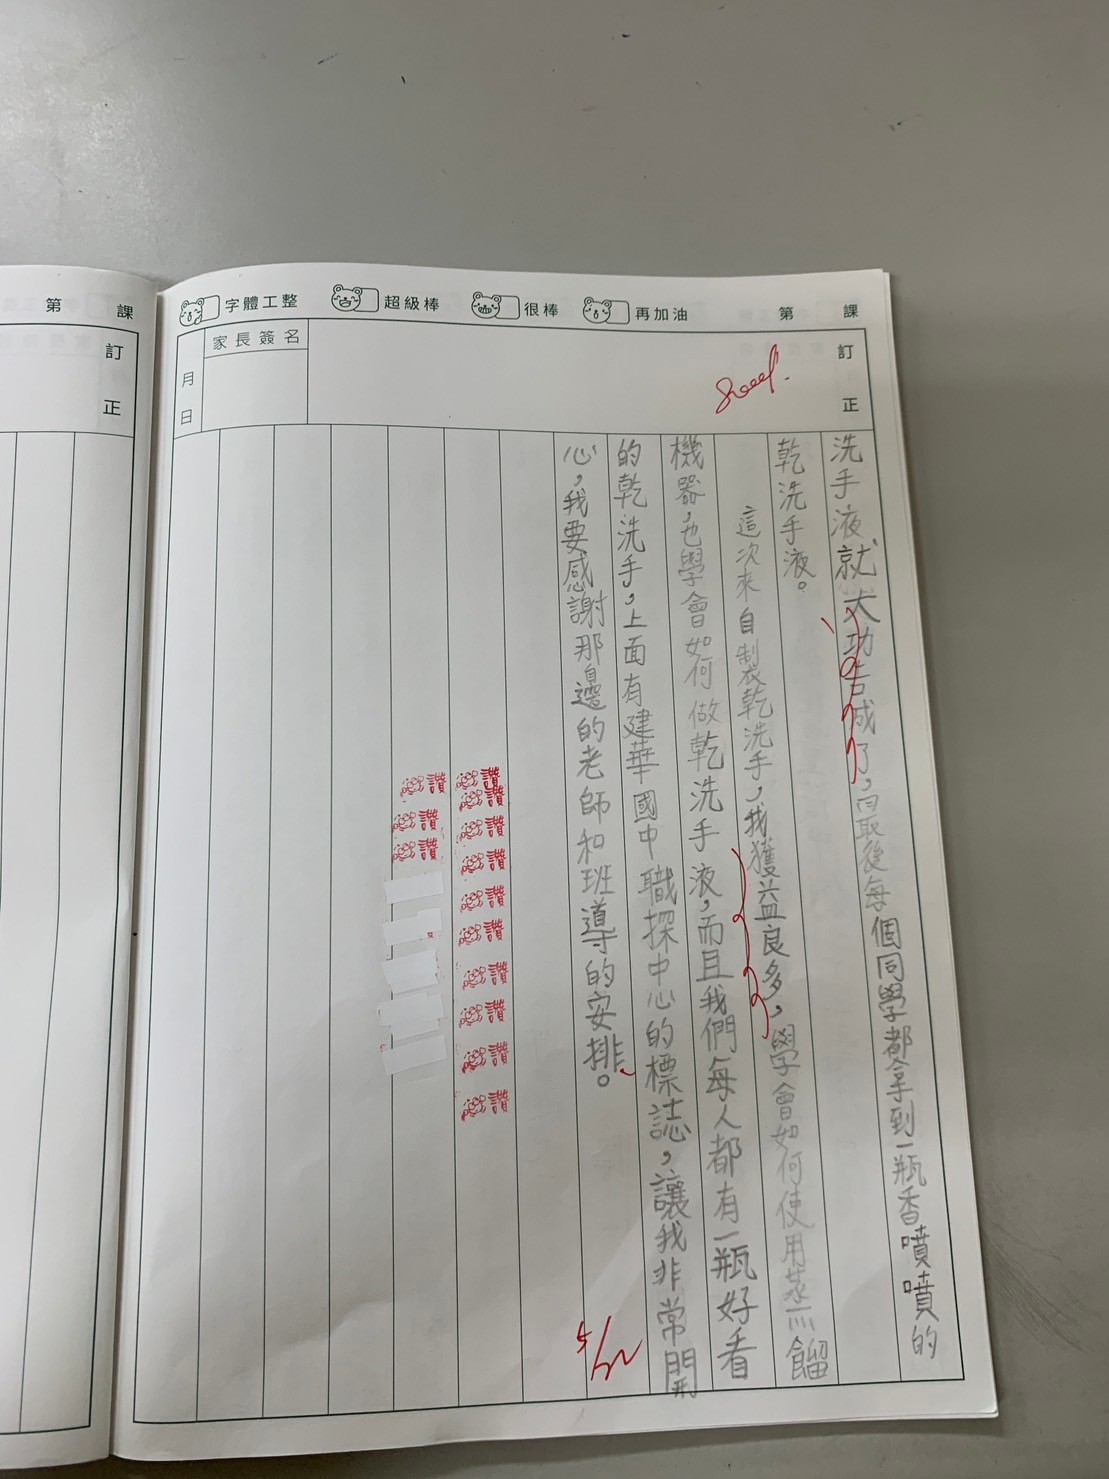 第 課
訂正
字體工整 超級棒 很棒 再加油 第 課
訂正
家長簽名
月 日
Good!
洗手液就大功告成了，最後每個同學都拿到一瓶香噴噴的
乾洗手液。
這次來自製乾洗手，我獲益良多，學會如何使用蒸餾
機器，也學會如何做乾洗手液，而且我們每人都有一瓶好看
的乾洗手，上面有建華國中職探中心的標誌，讓我非常開
心，我要感謝那邊的老師和班導的安排。
5/12
讚
讚
讚
讚
讚
讚
讚
讚
讚
讚
讚
讚
讚